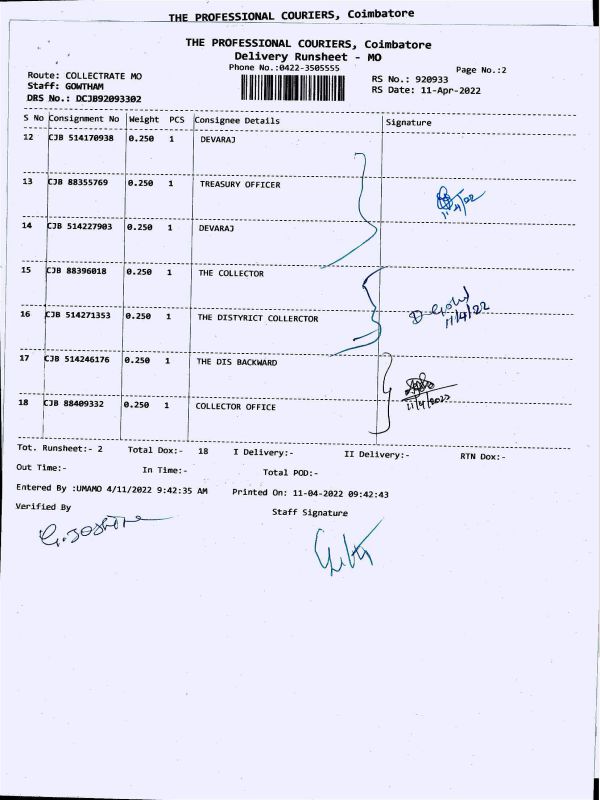 THE PROFESSIONAL COURIERS, Coimbatore
THE PROFESSIONAL COURIERS, Coimbatore
Delivery Runsheet - MO
Phone No.:0422-3505555
Page No.:2
Route: COLLECTRATE MO
RS No.: 920933
Staff: GOWTHAM
RS Date: 11-Apr-2022
DRS No.: DCJB92093302
S No Consignment No Weight PCS Consignee Details Signature
12 CJB 514170938 0.250 1 DEVARAJ
13 CJB 88355769 0.250 1 TREASURY OFFICER
14 CJB 514227903 0.250 1 DEVARAJ
15 CJB 88396018 0.250 1 THE COLLECTOR
16 CJB 514271353 0.250 1 THE DISTYRICT COLLERCTOR
11/4/22
17 CJB 514246176 0.250 1 THE DIS BACKWARD
18 CJB 88409332 0.250 1 COLLECTOR OFFICE
11/4/2022
Tot. Runsheet:- 2 Total Dox:- 18 I Delivery:- II Delivery:- RTN Dox:-
Out Time:- In Time:- Total POD:-
Entered By :UMAMO 4/11/2022 9:42:35 AM Printed On: 11-04-2022 09:42:43
Verified By
Staff Signature